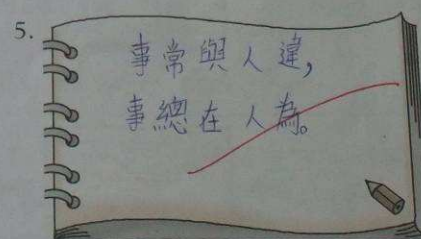 5.
事常與人違,
事總在人為。